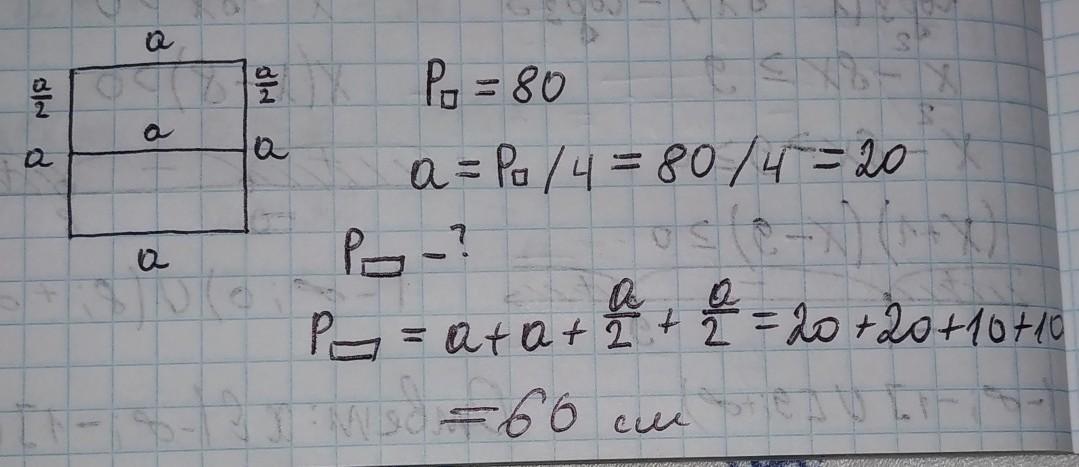 a
a/2 a/2
a
a a
a
P□ = 80
a = P□ / 4 = 80 / 4 = 20
P▭ - ?
P▭ = a + a + a/2 + a/2 = 20 + 20 + 10 + 10
= 60 см